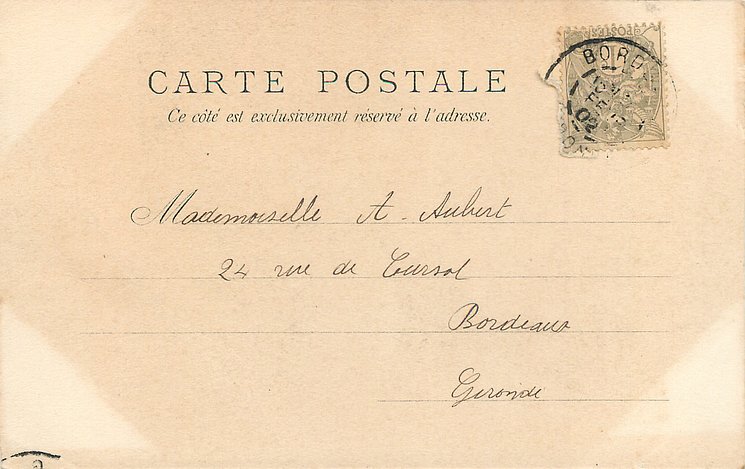 BORD
02
CARTE POSTALE
Ce côté est exclusivement réservé à l'adresse.
Mademoiselle A. Aubert
24 rue de Cursol
Bordeaux
Gironde